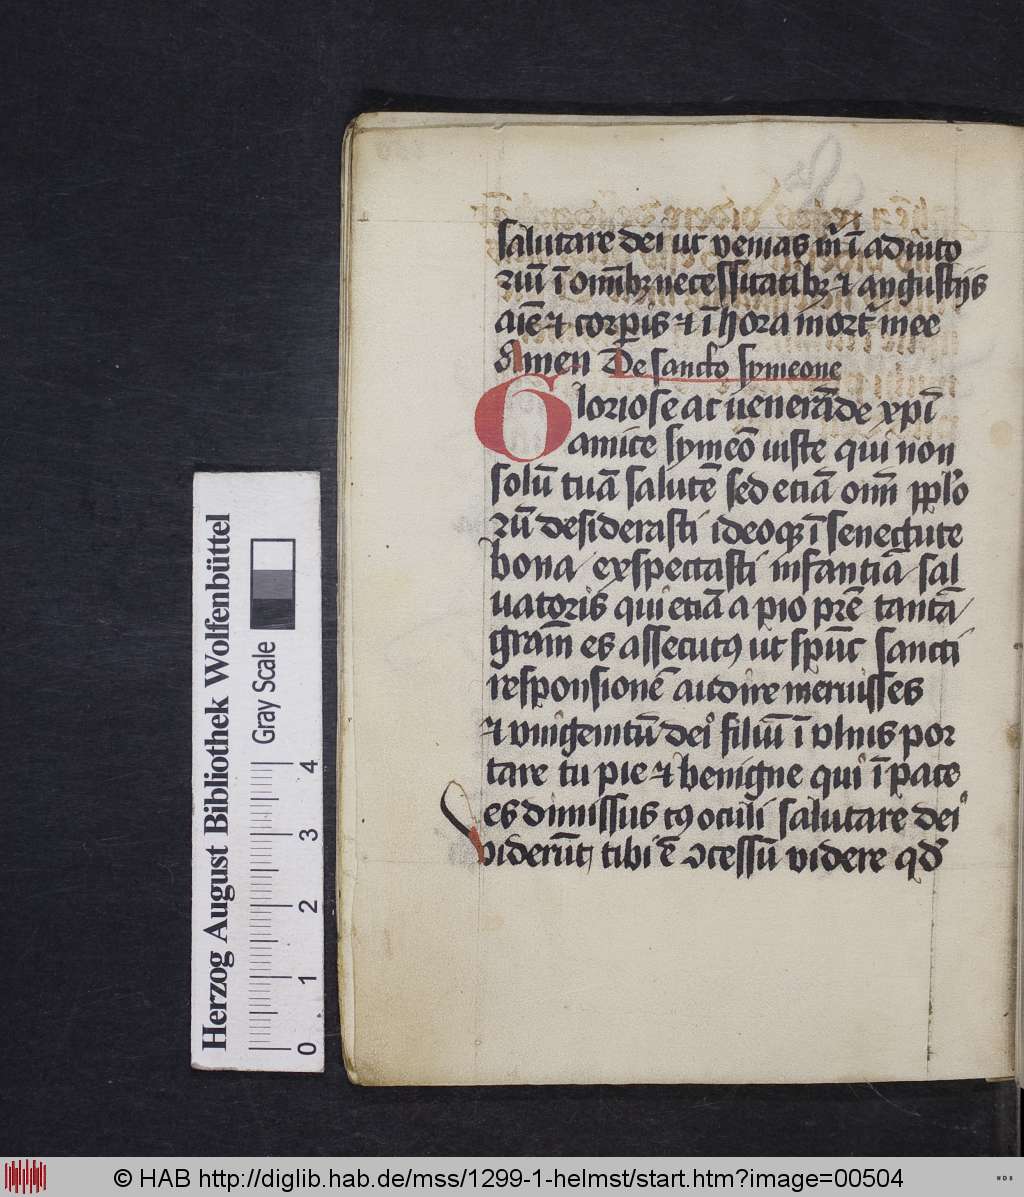 salutare dei ut venias m̄ ī adiuto
riū ī om̄ibꝫ necessitatibꝫ ⁊ angustijs
aīe ⁊ corꝑis ⁊ ī hora mort̄ mee
Amen De sancto symeone
Gloriose ac venerāde xp̄i
amice symeō iuste qui non
solū tuā salutē sed etiā om̄
rū desiderasti ideoqꝫ ī senectute
bona exspectasti infantiā sal
uatoris qui etiā a pio pr̄e tantā
gr̄am es assecutꝰ ut sp̄uc sancti
responsionē audire meruisses
⁊ vnigenitū dei filiū ī vlnis por
tare tu pie ⁊ benigne qui ī pace
es dimissus cꝰ oculi salutare dei
viderūt tibi ē ꝯcessū videre qd̄
Herzog August Bibliothek Wolfenbüttel
Gray Scale
0 1 2 3 4
© HAB http://diglib.hab.de/mss/1299-1-helmst/start.htm?image=00504